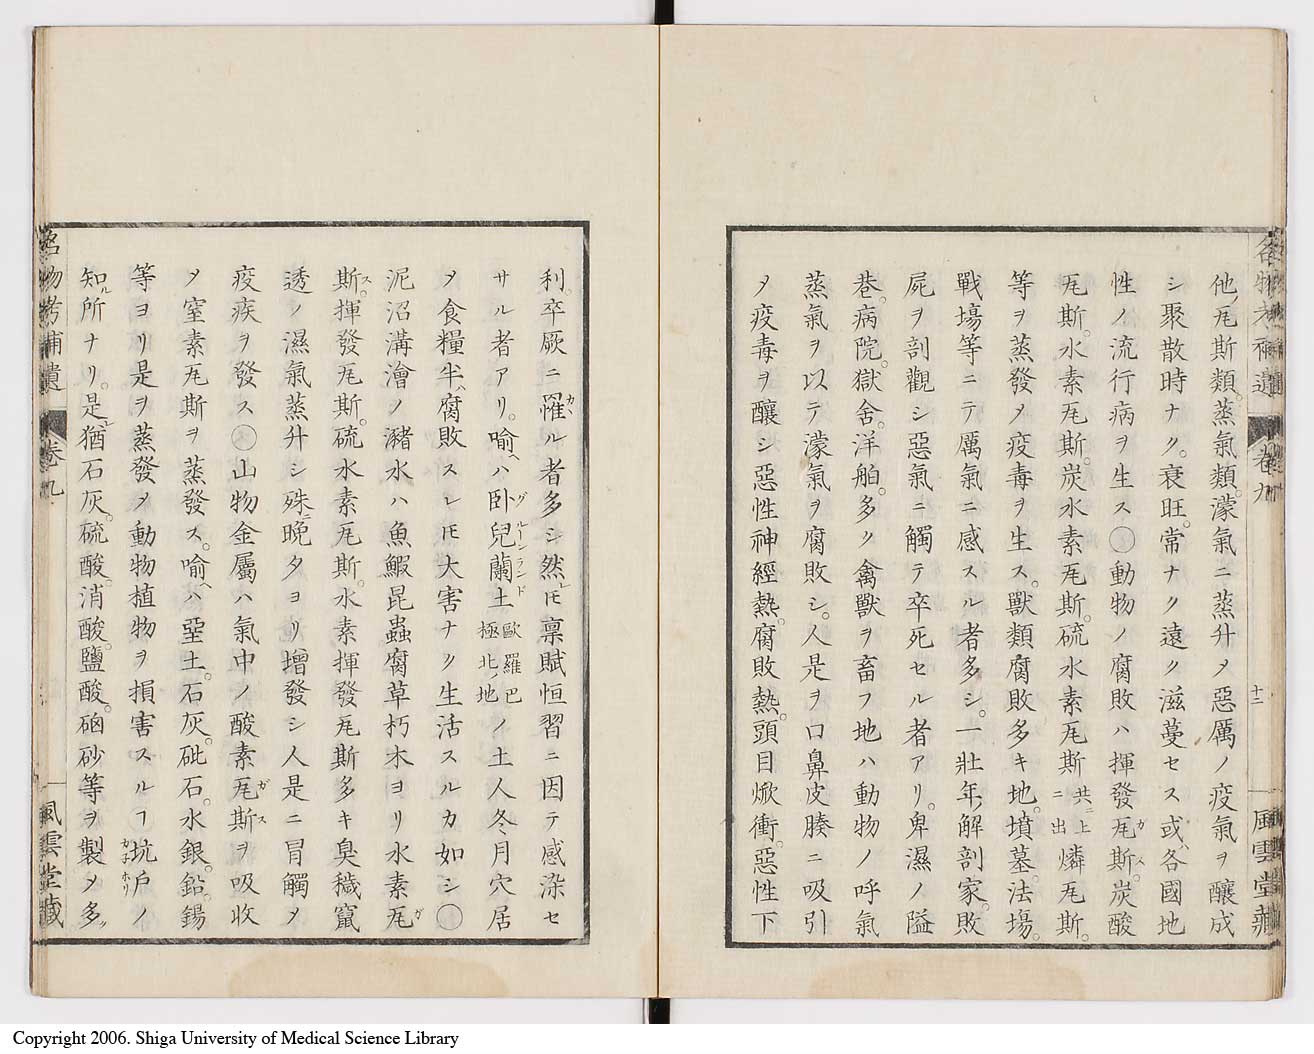 名物考補遺 卷九 十二 風雲堂藏
他ノ瓦斯類。蒸氣類。濛氣ニ蒸升メ惡厲ノ疫氣ヲ釀成
シ聚散時ナク。衰旺。常ナク遠ク滋蔓セス或ハ各國地
性ノ流行病ヲ生ス○動物ノ腐敗ハ揮發瓦斯。炭酸
瓦斯。水素瓦斯。炭水素瓦斯。硫水素瓦斯共ニ上ニ出燐瓦斯。
等ヲ蒸發メ疫毒ヲ生ス。獸類腐敗多キ地。墳墓。法塲。
戰塲等ニテ厲氣ニ感スル者多シ。一壯年、解剖家。敗
屍ヲ剖觀シ惡氣ニ觸テ卒死セル者アリ。卑濕ノ隘
巷。病院。獄舍。洋舶。多ク禽獸ヲ畜フ地ハ動物ノ呼氣
蒸氣ヲ以テ濛氣ヲ腐敗シ。人是ヲ口鼻皮腠ニ吸引
メ疫毒ヲ釀シ惡性神經熱。腐敗熱。頭目焮衝。惡性下
利。卒厥ニ罹ル者多シ然レ𪜈稟賦恒習ニ因テ感染セ
サル者アリ。喻ヘハ卧兒蘭土歐羅巴極北ノ地ノ土人冬月穴居
メ食糧半ハ腐敗スレ𪜈大害ナク生活スルカ如シ○
泥沼溝澮ノ瀦水ハ魚鰕昆蟲腐草朽木ヨリ水素瓦
斯。揮發瓦斯。硫水素瓦斯。水素揮發瓦斯多キ臭穢竄
透ノ濕氣蒸升シ殊ニ晩夕ヨリ增發シ人是ニ冒觸メ
疫疾ヲ發ス○山物金屬ハ氣中ノ酸素瓦斯ヲ吸收
メ窒素瓦斯ヲ蒸發ス。喻ヘハ堊土。石灰。砒石。水銀。鉛。錫
等ヨリ是ヲ蒸發メ動物植物ヲ損害スルヿ坑戶ノ
知ル所ナリ。是レ猶石灰。硫酸。消酸。鹽酸。硇砂等ヲ製メ多ク
名物考補遺 卷九 風雲堂藏
Copyright 2006. Shiga University of Medical Science Library